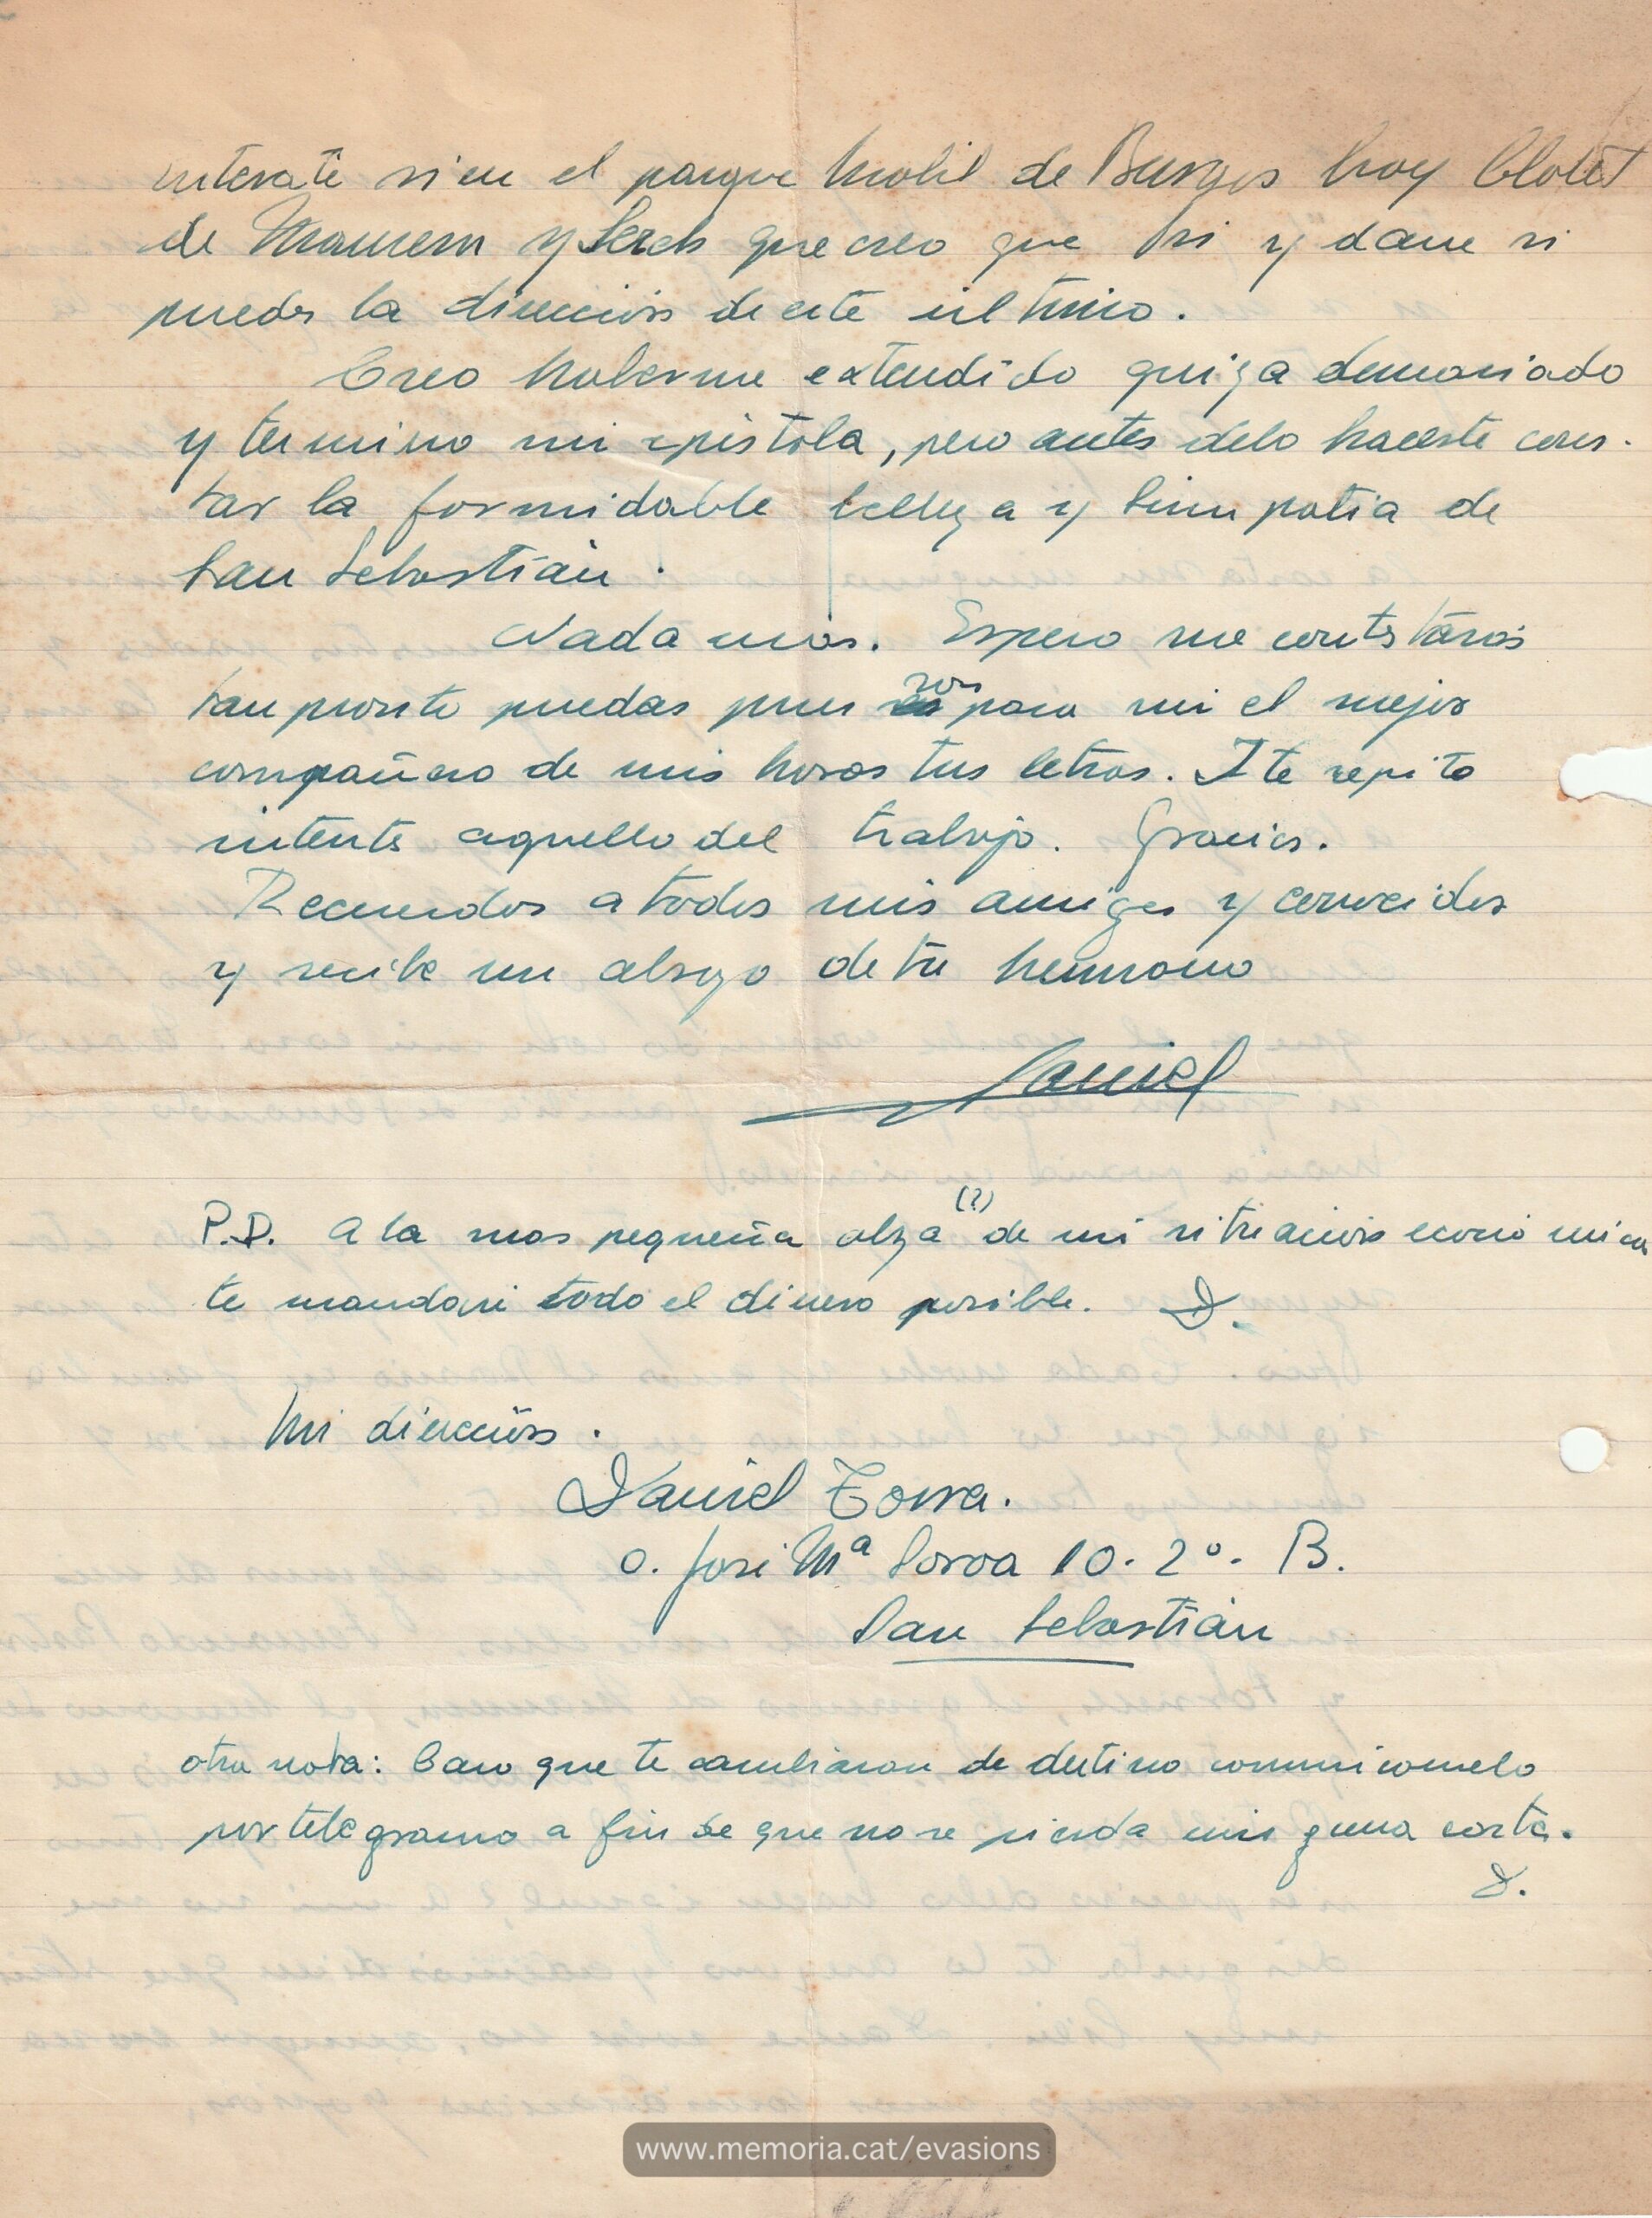 enterate si en el parque Movil de Burgos hay Clotet
de Manresa y Serch que creo que si y dame si
puedes la dirección de este ultimo.
Creo haberme extendido quiza demasiado
y termino mi epistola, pero antes debo hacerte cons-
tar la formidable belleza y simpatia de
San Sebastián.
Nada mas. Espero me contestarás
tan pronto puedas pues son para mi el mejor
compañero de mis horas tus letras. I te repito
intentes aquello del trabajo. Gracias.
Recuerdos a todos mis amigos y conocidos
y recibe un abrazo de tu hermano
Daniel
P.D. A la mas pequeña alza (?) de mi situación económica
te mandaré todo el dinero posible. D.
Mi dirección.
Daniel Torra.
C. José Mª Soroa 10. 2º. B.
San Sebastián
otra nota: Caso que te cambiaran de destino comunicamelo
por telegrama a fin de que no se pierda ninguna carta.
D.
www.memoria.cat/evasions